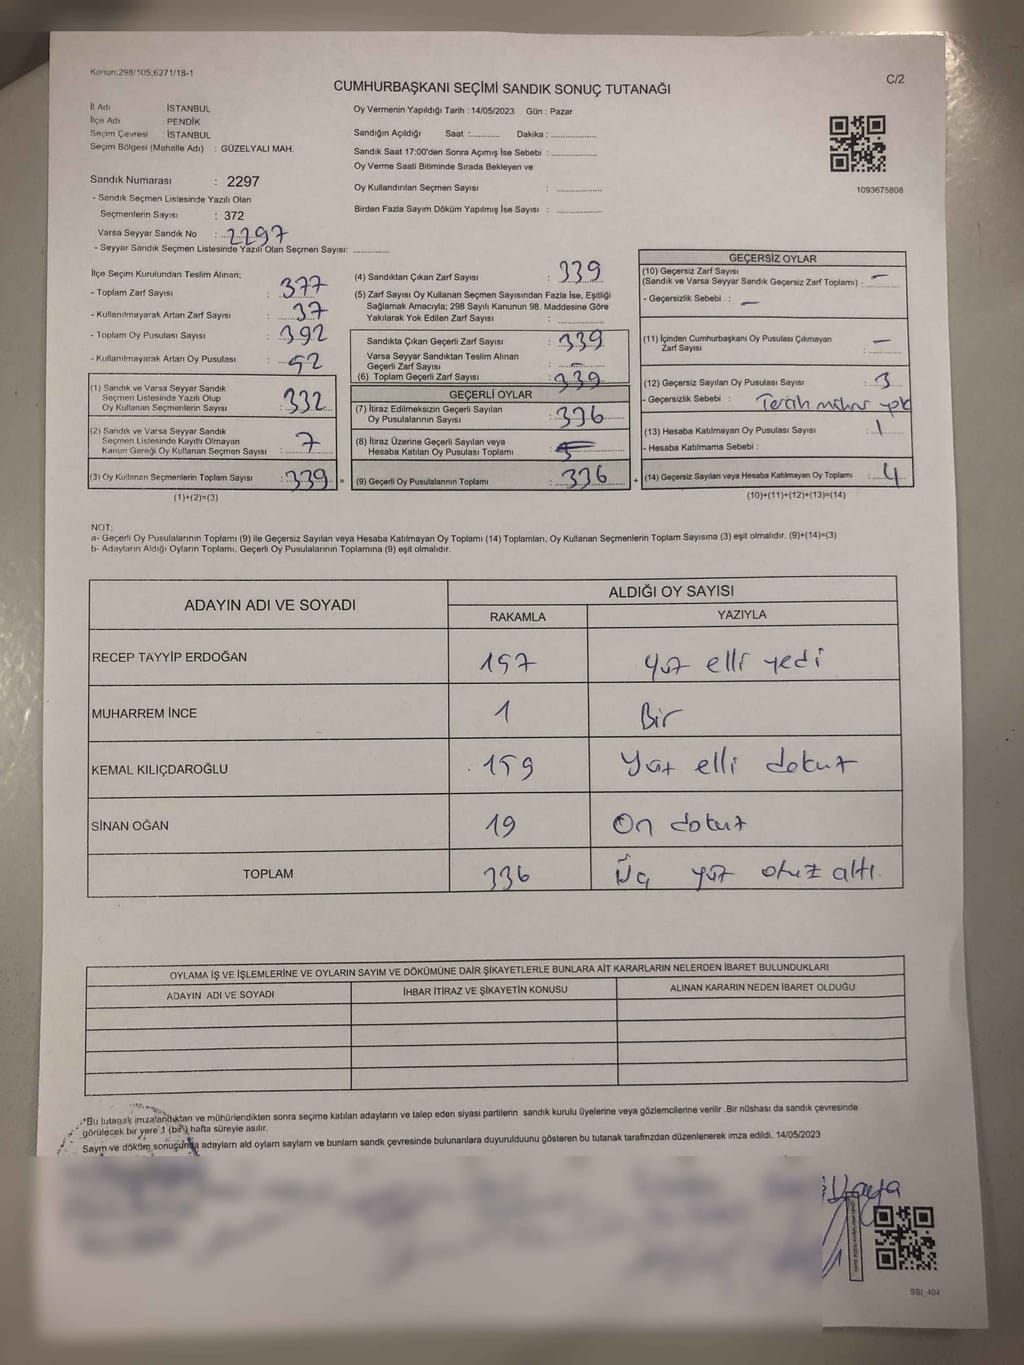 Kanun:298/105;6271/18-1
C/2
CUMHURBAŞKANI SEÇİMİ SANDIK SONUÇ TUTANAĞI
İl Adı : İSTANBUL
İlçe Adı : PENDİK
Seçim Çevresi : İSTANBUL
Seçim Bölgesi (Mahalle Adı) : GÜZELYALI MAH.
Sandık Numarası : 2297
- Sandık Seçmen Listesinde Yazılı Olan
Seçmenlerin Sayısı : 372
Varsa Seyyar Sandık No : 2297
- Seyyar Sandık Seçmen Listesinde Yazılı Olan Seçmen Sayısı: ............
Oy Vermenin Yapıldığı Tarih : 14/05/2023 Gün : Pazar
Sandığın Açıldığı Saat :.......... Dakika : ..............
Sandık Saat 17:00'den Sonra Açımış İse Sebebi : ..............
Oy Verme Saati Bitiminde Sırada Bekleyen ve
Oy Kullandırılan Seçmen Sayısı : ..............
Birden Fazla Sayım Döküm Yapılmış İse Sayısı : ..............
1093675808
İlçe Seçim Kurulundan Teslim Alınan;
- Toplam Zarf Sayısı : 377
- Kullanılmayarak Artan Zarf Sayısı : 37
- Toplam Oy Pusulası Sayısı : 392
- Kullanılmayarak Artan Oy Pusulası : 52
(1) Sandık ve Varsa Seyyar Sandık
Seçmen Listesinde Yazılı Olup
Oy Kullanan Seçmenlerin Sayısı : 332
(2) Sandık ve Varsa Seyyar Sandık
Seçmen Listesinde Kayıtlı Olmayan
Kanun Gereği Oy Kullanan Seçmen Sayısı : 7
(3) Oy Kullanan Seçmenlerin Toplam Sayısı : 339
(1)+(2)=(3)
(4) Sandıktan Çıkan Zarf Sayısı : 339
(5) Zarf Sayısı Oy Kullanan Seçmen Sayısından Fazla İse, Eşitliği
Sağlamak Amacıyla; 298 Sayılı Kanunun 98. Maddesine Göre
Yakılarak Yok Edilen Zarf Sayısı : ..............
Sandıkta Çıkan Geçerli Zarf Sayısı : 339
Varsa Seyyar Sandıktan Teslim Alınan
Geçerli Zarf Sayısı : -
(6) Toplam Geçerli Zarf Sayısı : 339
GEÇERLİ OYLAR
(7) İtiraz Edilmeksizin Geçerli Sayılan
Oy Pusulasının Sayısı : 336
(8) İtiraz Üzerine Geçerli Sayılan veya
Hesaba Katılan Oy Pusulası Toplamı :
(9) Geçerli Oy Pusulalarının Toplamı : 336
=
+
GEÇERSİZ OYLAR
(10) Geçersiz Zarf Sayısı
(Sandık ve Varsa Seyyar Sandık Geçersiz Zarf Toplamı) : -
- Geçersizlik Sebebi : -
(11) İçinden Cumhurbaşkanı Oy Pusulası Çıkmayan
Zarf Sayısı : -
(12) Geçersiz Sayılan Oy Pusulası Sayısı : 3
- Geçersizlik Sebebi : Tercih mührü yok
(13) Hesaba Katılmayan Oy Pusulası Sayısı : 1
- Hesaba Katılmama Sebebi :
(14) Geçersiz Sayılan veya Hesaba Katılmayan Oy Toplamı : 4
(10)+(11)+(12)+(13)=(14)
NOT:
a- Geçerli Oy Pusulalarının Toplamı (9) ile Geçersiz Sayılan veya Hesaba Katılmayan Oy Toplamı (14) Toplamları, Oy Kullanan Seçmenlerin Toplam Sayısına (3) eşit olmalıdır. (9)+(14)=(3)
b- Adayların Aldığı Oyların Toplamı, Geçerli Oy Pusulalarının Toplamına (9) eşit olmalıdır.
ADAYIN ADI VE SOYADI
ALDIĞI OY SAYISI
RAKAMLA YAZIYLA
RECEP TAYYİP ERDOĞAN 157 Yüz elli yedi
MUHARREM İNCE 1 Bir
KEMAL KILIÇDAROĞLU 159 Yüz elli dokuz
SİNAN OĞAN 19 On dokuz
TOPLAM 336 Üç yüz otuz altı.
OYLAMA İŞ VE İŞLEMLERİNE VE OYLARIN SAYIM VE DÖKÜMÜNE DAİR ŞİKAYETLERLE BUNLARA AİT KARARLARIN NELERDEN İBARET BULUNDUKLARI
ADAYIN ADI VE SOYADI İHBAR İTİRAZ VE ŞİKAYETİN KONUSU ALINAN KARARIN NEDEN İBARET OLDUĞU
*Bu tutanak imzalandıktan ve mühürlendikten sonra seçime katılan adayların ve talep eden siyasi partilerin sandık kurulu üyelerine veya gözlemcilerine verilir .Bir nüshası da sandık çevresinde
görülecek bir yere 1 (bir) hafta süreyle asılır.
Sayım ve döküm sonucunda adayların ald oyların sayların ve bunların sandk çevresinde bulunanlara duyurulduunu gösteren bu tutanak tarafmzdan düzenlenerek imza edildi. 14/05/2023
SSI_404